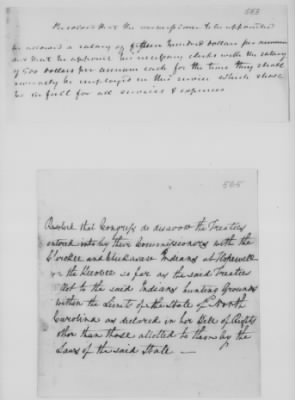 583
Resolved that the commissioners to be appointed
be allowed a salary of fifteen hundred dollars per annum
and that he appoint the necessary clerks with the salary
of 500 dollars per annum each for the time they shall
necessarily be employed in this service which shall
be in full for all services & expences
585
Resolved that Congress do disavow the Treaties
entered into by their Commissioners with the
Cherokee and Chickasaw Indians at Hopewell
on the Keeowee so far as the said Treaties
allot to the said Indians hunting Grounds
within the Limits of the State of North
Carolina as declared in her Bill of Rights
other than those allotted to them by the
Laws of the said State —